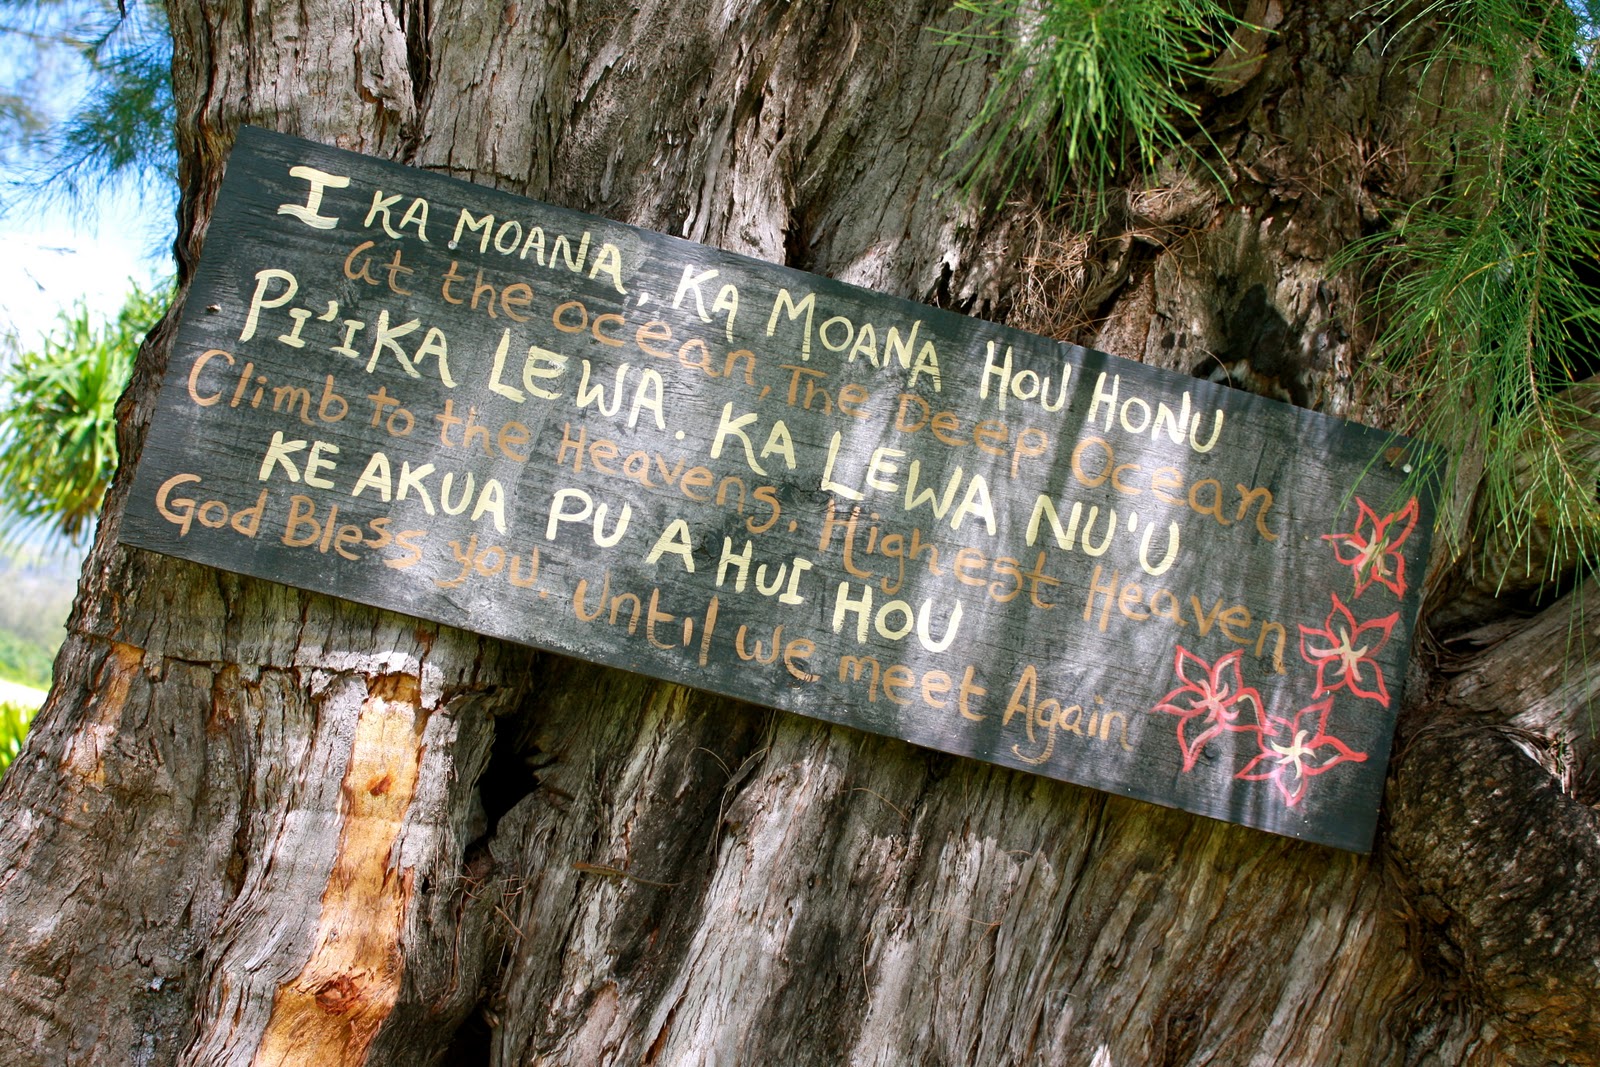 I KA MOANA, KA MOANA HOU HONU
at the ocean, The Deep Ocean
PI'I KA LEWA. KA LEWA NU'U
Climb to the Heavens, Highest Heaven
KE AKUA PU A HUI HOU
God Bless you. Until we meet Again